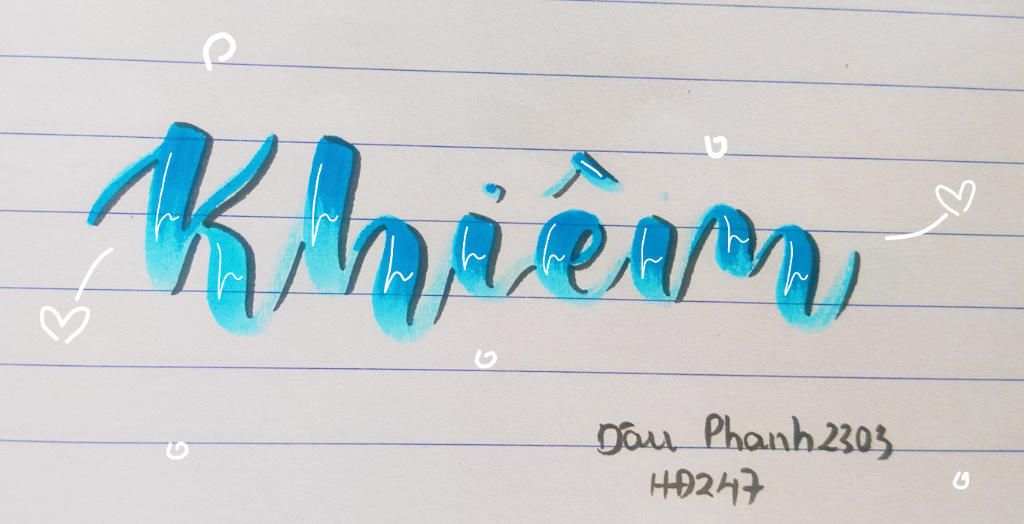 Khiêm
Dâu Phanh2303
HĐ247